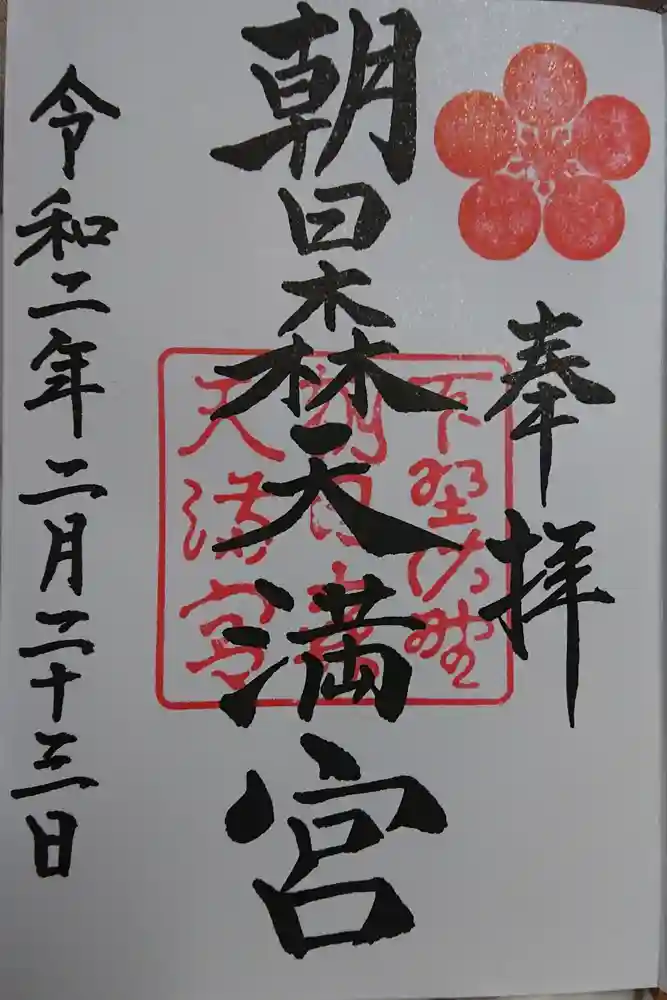 奉拝
朝日森天満宮
令和二年二月二十三日
下野佐野
朝日森
天満宮